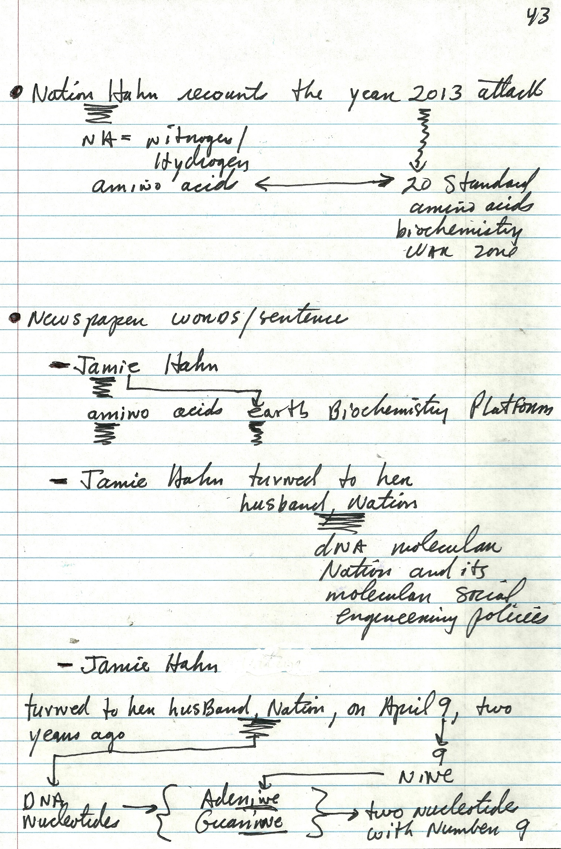 43
• Nation Hahn recounts the year 2013 attack
NH = Nitrogen/
Hydrogen
amino acids
20 Standard
amino acids
biochemistry
WAR zone
• Newspaper words/sentence
- Jamie Hahn
amino acids Earth Biochemistry Platform
- Jamie Hahn turned to her
husband, Nation
dNA molecular
Nation and its
molecular social
engineering policies
- Jamie Hahn
turned to her husband, Nation, on April 9, two
years ago
9
NiNe
DNA
Nucleotides
Adenine
Guanine
two nucleotides
with Number 9